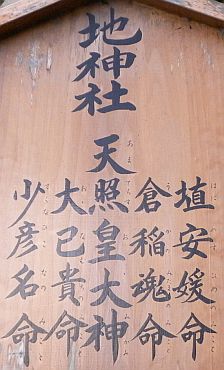 地神社
埴安媛命
倉稲魂命
天照皇大神
大己貴命
少彦名命